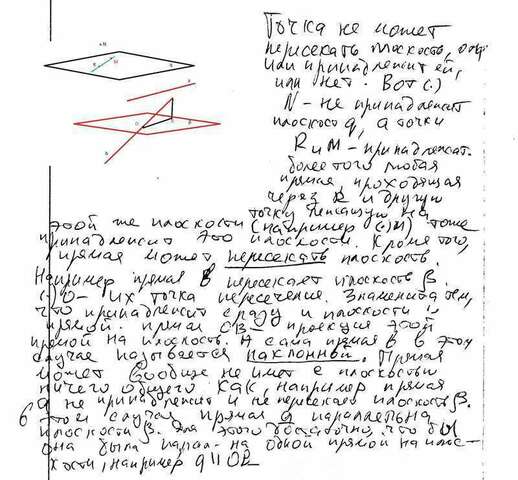 Точка не может
пересекать плоскость, она
или принадлежит ей,
или нет. Вот (.)
N - не принадлежит
плоскости, а точки
R и M - принадлежат.
более того любая
прямая, проходящая
через R и другую
точку лежащую на
этой же плоскости (например (.) M) тоже
принадлежит этой плоскости. Кроме того,
прямая может пересекать плоскость.
Например прямая b пересекает плоскость β.
(.) O - их точка пересечения. Знаменита тем,
что принадлежит сразу и плоскости и
прямой. прямая OB - проекция этой
прямой на плоскость. А сама прямая b в этом
случае называется наклонной. Прямая
может вообще не имет с плоскостью
ничего общего как, например прямая
q не принадлежит и не пересекает плоскость β.
В этом случае прямая q параллельна
плоскости β. Для этого достаточно, что бы
она была парал-на одной прямой на плос-
кости, например q || OR